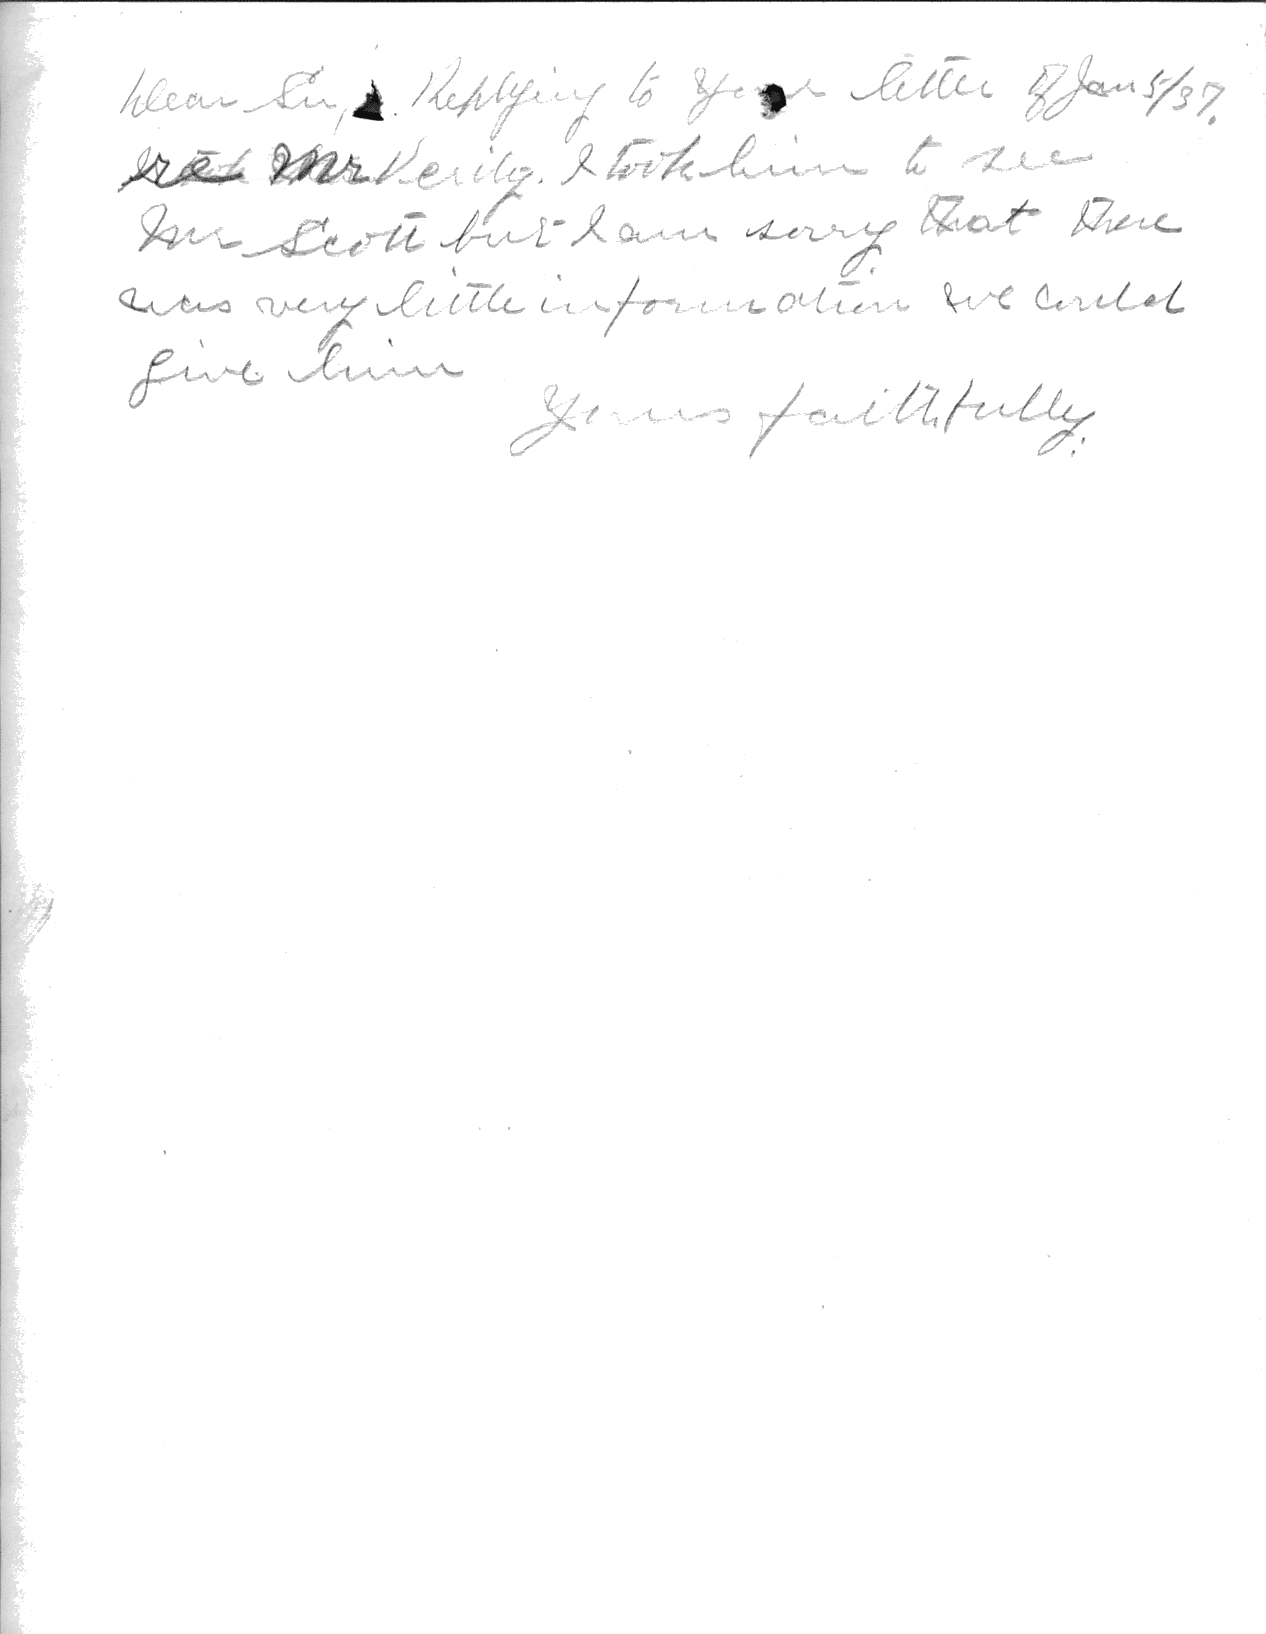 Dear Sir, Replying to your letter of Jan 5/37.
re Mr I took him to see
Mr Scott but I am sorry that there
was very little information we could
give him
Yours faithfully.